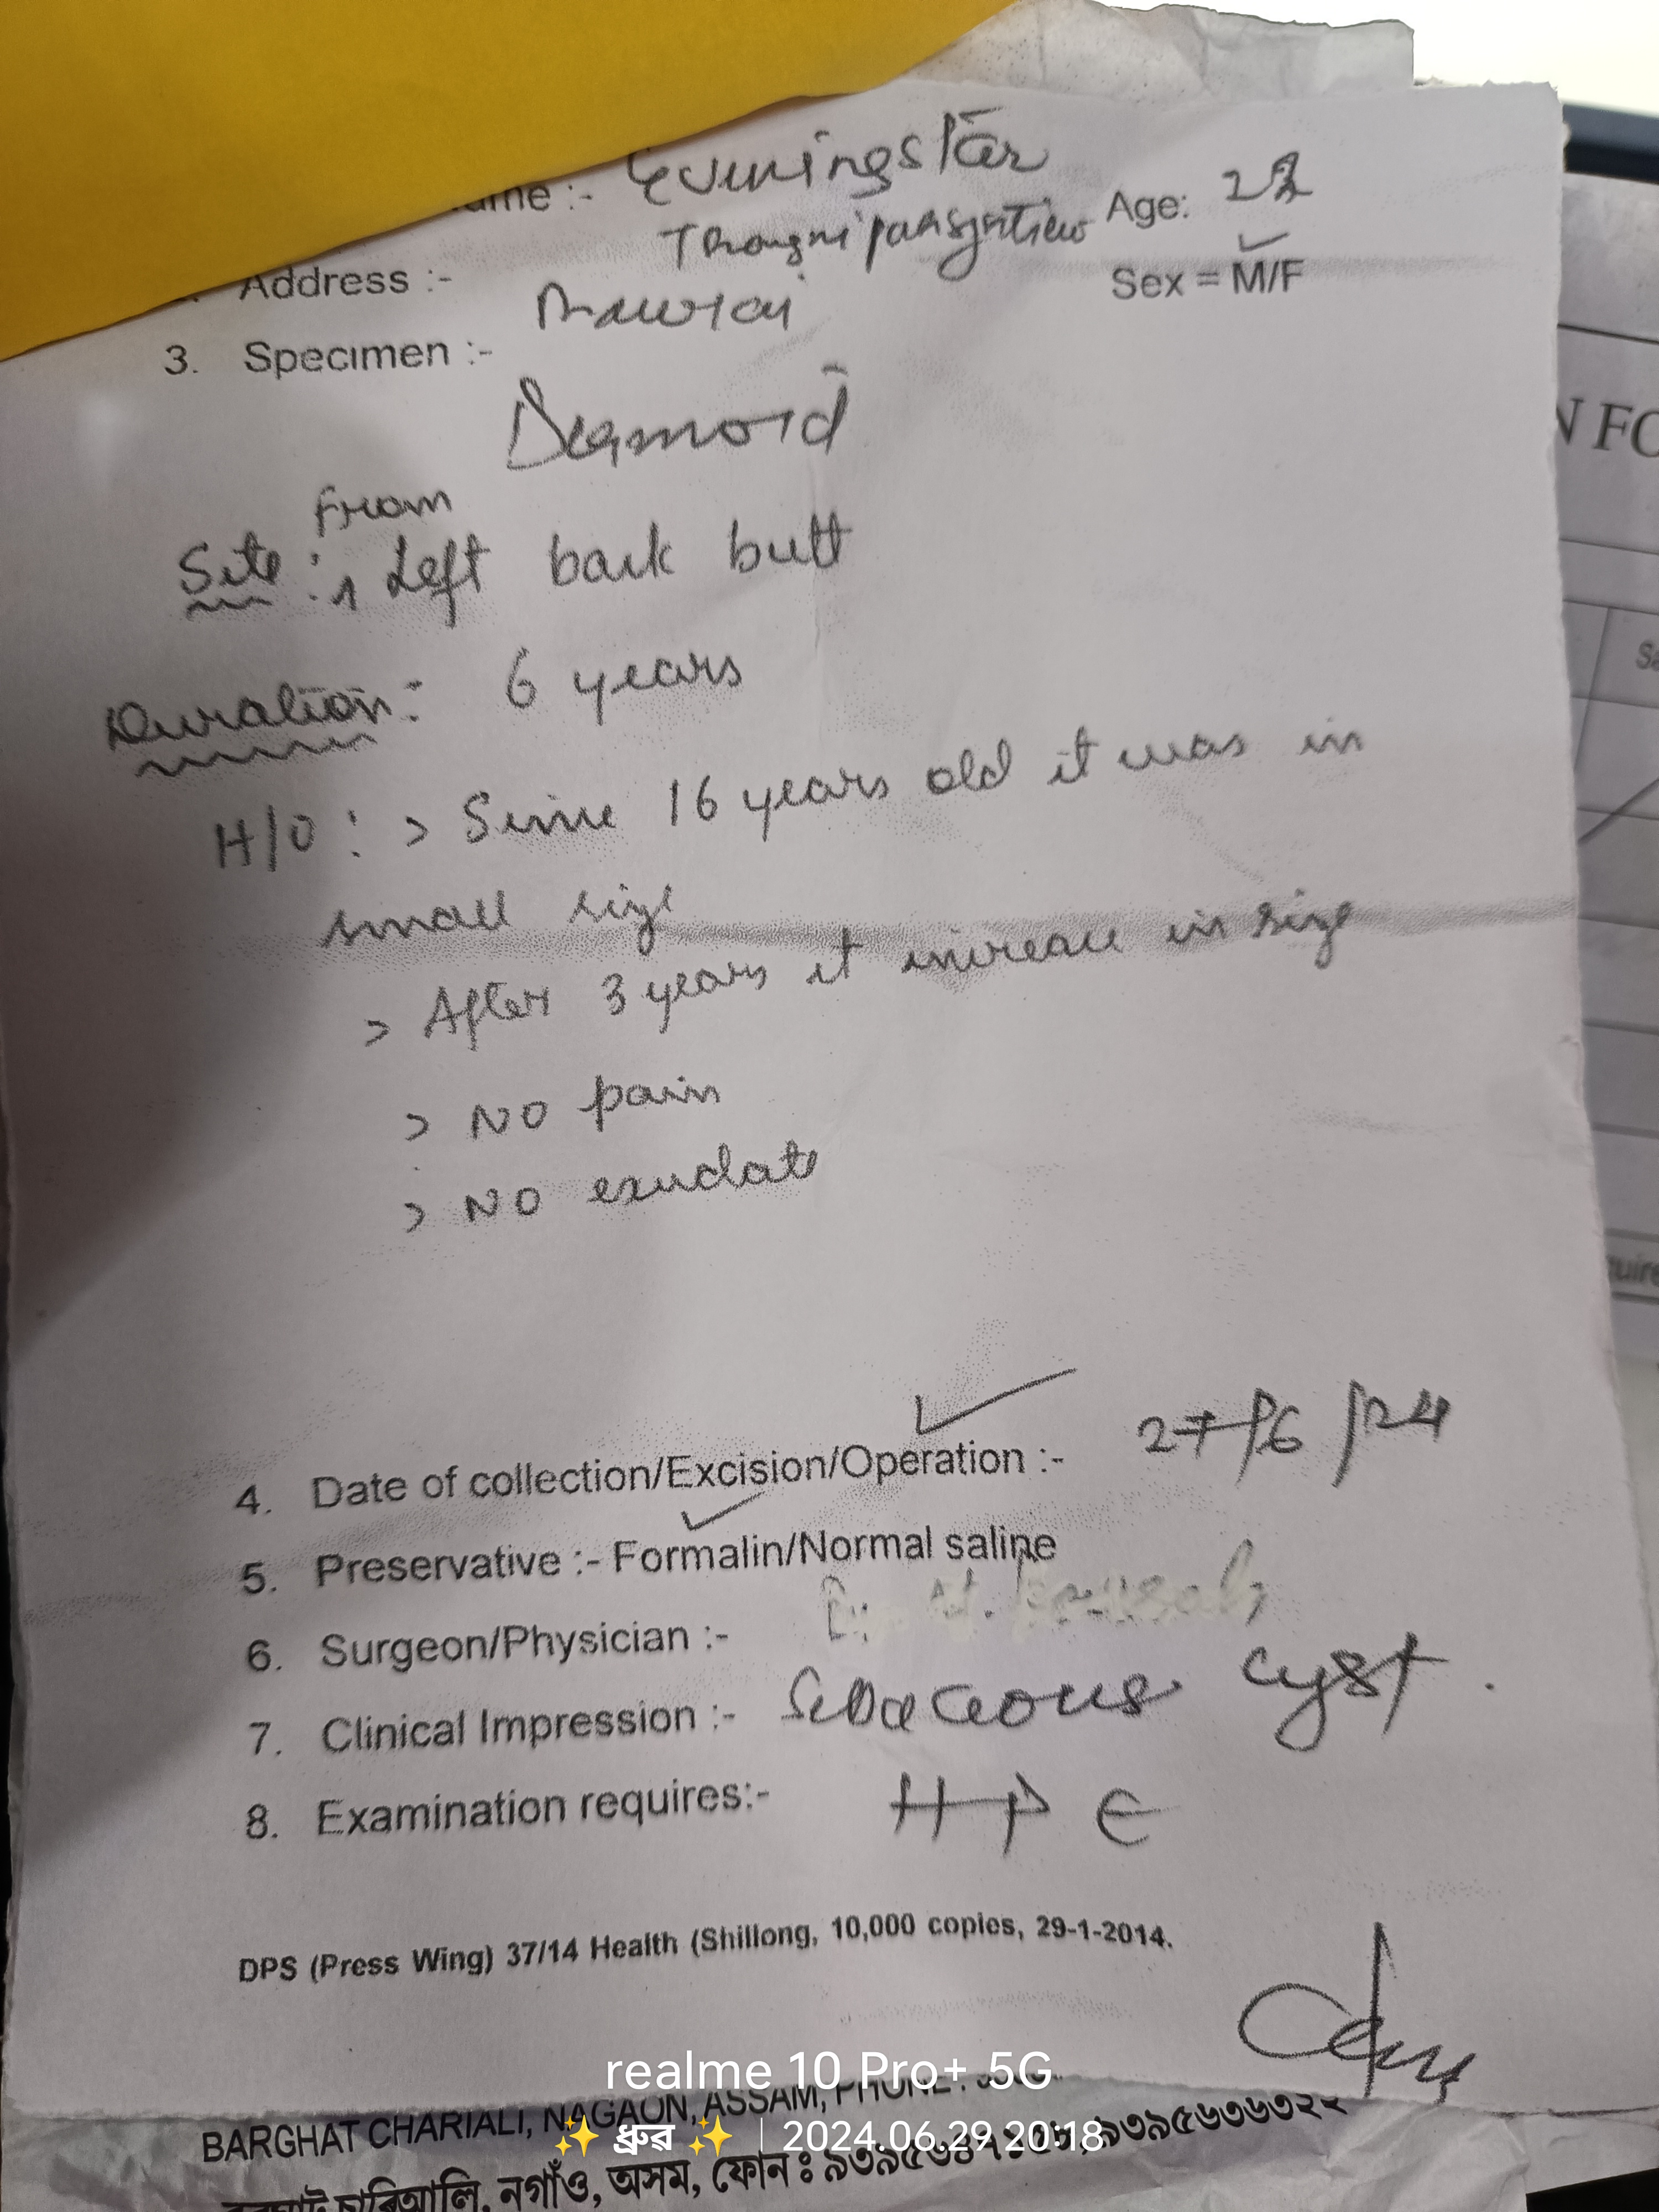 ame :- Eveningstar
Age: 22
Address :-
Sex = M/F
Mawlai
3. Specimen :-
Desmoid
from
Site : Left back butt
Duration: 6 years
H/O : > Since 16 years old it was in
small size
> After 3 years it increase in size
> NO pain
> NO exudate
4. Date of collection/Excision/Operation :- 27/6/24
5. Preservative :- Formalin/Normal saline
6. Surgeon/Physician :-
7. Clinical Impression :- Sebaceous cyst.
8. Examination requires:- HPE
DPS (Press Wing) 37/14 Health (Shillong, 10,000 copies, 29-1-2014.
realme 10 Pro+ 5G
BARGHAT CHARIALI, NAGAON, ASSAM, PHONE :
✨ ধ্ৰুৱ ✨ | 2024.06.29 20:18
চাৰিআলি, নগাঁও, অসম, ফোন ঃ
N FO